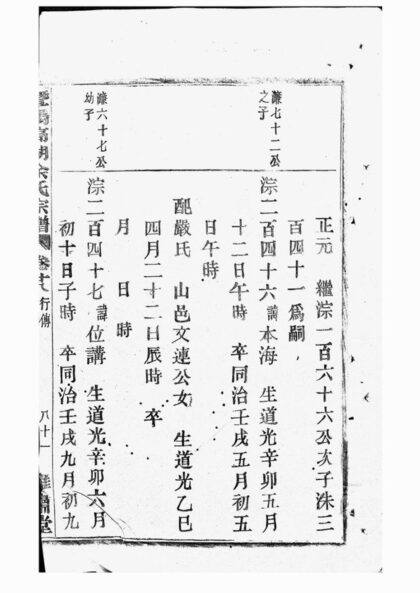 正元　繼淙一百六十六公次子洙三
百四十一爲嗣
濂七十二公
之子
淙二百四十六諱本海　生道光辛卯五月
十二日午時　卒同治壬戌五月初五
日午時
配嚴氏　山邑文連公女　生道光乙巳
四月二十二日辰時　卒
月　日　時
濂六十七公
幼子
淙二百四十七諱位講　生道光辛卯六月
初十日子時　卒同治壬戌九月初九
余氏宗譜　卷十八　行傳　八十一　堂